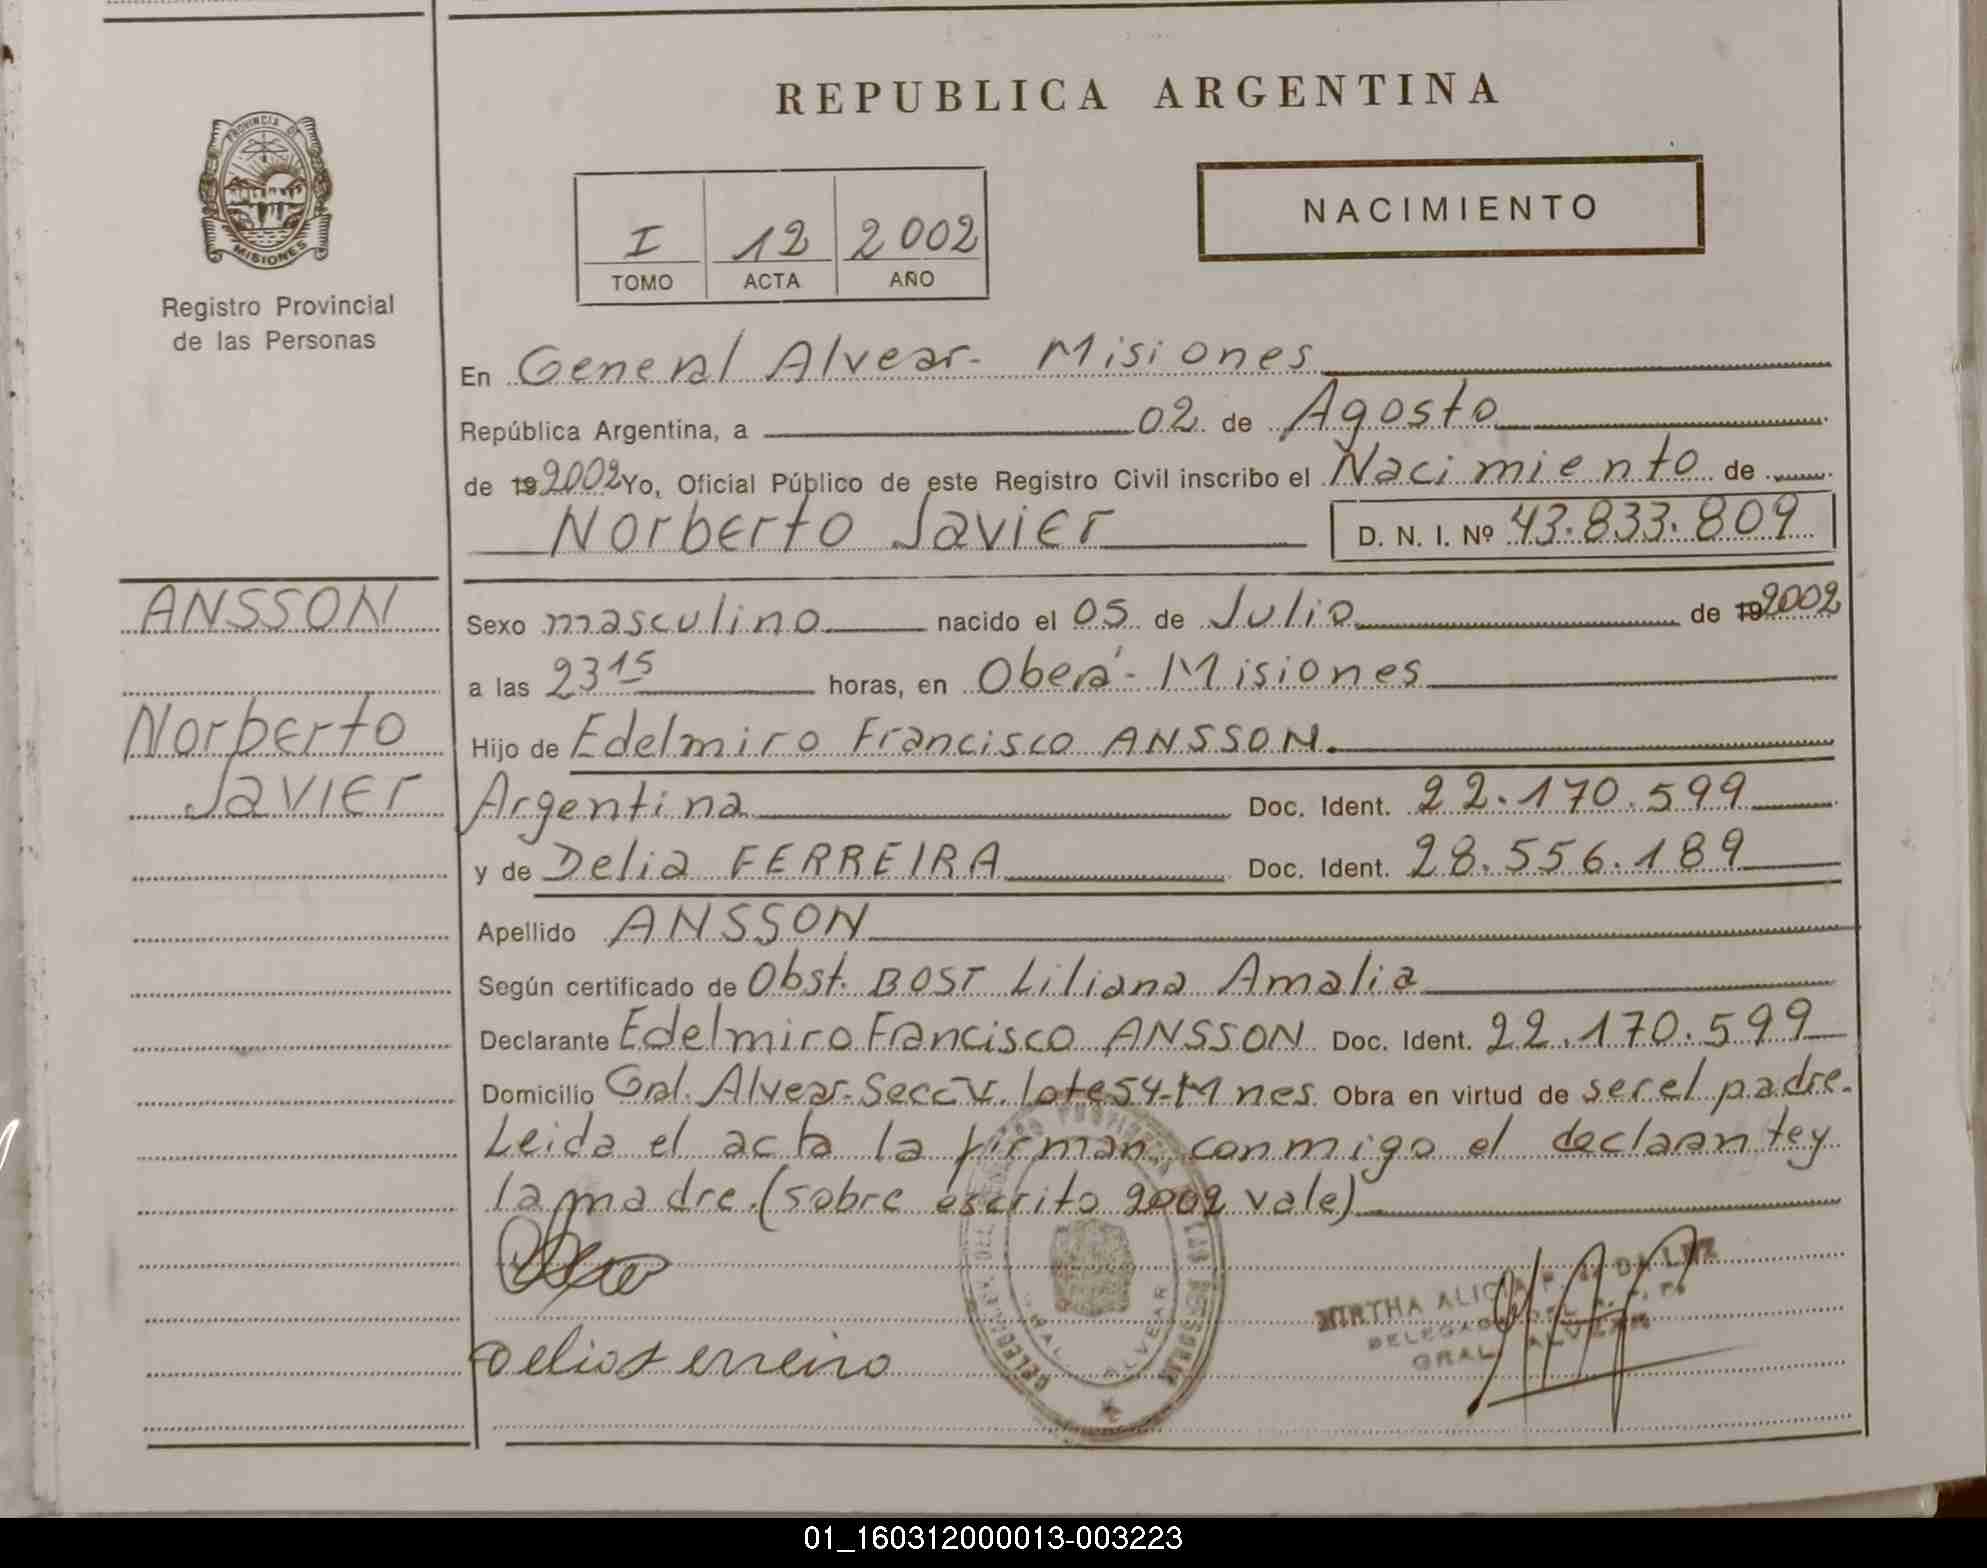 REPUBLICA ARGENTINA
PROVINCIA DE
MISIONES
Registro Provincial
de las Personas
NACIMIENTO
I 12 2002
TOMO ACTA AÑO
En General Alvear- Misiones
República Argentina, a 02 de Agosto
de 19 2002 Yo, Oficial Público de este Registro Civil inscribo el Nacimiento de
Norberto Javier D. N. I. Nº 43.833.809
ANSSON
Norberto
Javier
Sexo masculino nacido el 05 de Julio de 19 2002
a las 23 15 horas, en Oberá- Misiones
Hijo de Edelmiro Francisco ANSSON.
Argentina Doc. Ident. 22.170.599
y de Delia FERREIRA Doc. Ident. 28.556.189
Apellido ANSSON
Según certificado de Obst. BOST Liliana Amalia
Declarante Edelmiro Francisco ANSSON Doc. Ident. 22.170.599
Domicilio Gral. Alvear-Secc V. lote 54-Mnes Obra en virtud de ser el padre.
Leida el acta la firman conmigo el declaran te y
la madre. (sobre escrito 2002 vale)
Delia Ferreira
GRAL. ALVEAR
MIRTHA ALICIA F. DA LUZ
DELEGADA
GRAL. ALVEAR
01_160312000013-003223